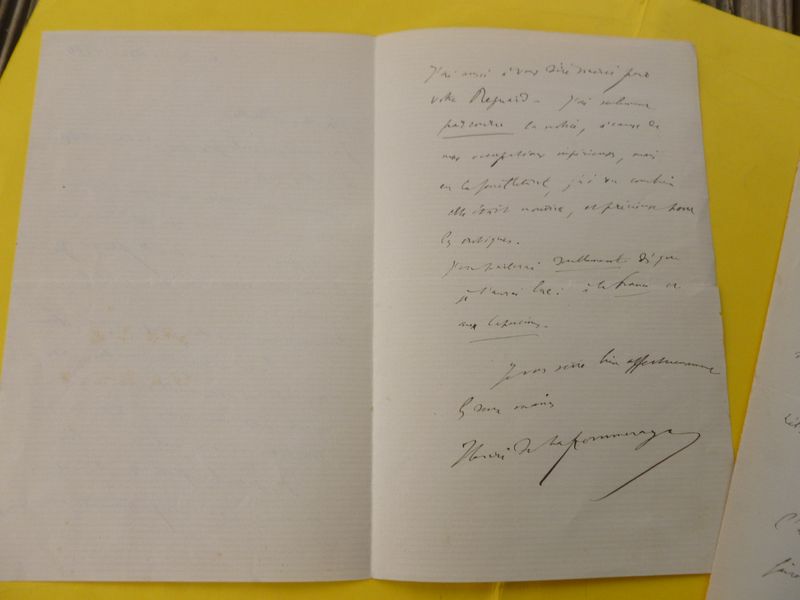 J'ai aussi à vous dire merci pour
votre Regnard – J'ai seulement
parcouru la notice, à cause de
mes occupations infinies, mais
en la feuilletant, j'ai vu combien
elle était nourrie, et précieuse pour
les critiques.
J'en parlerai dès que
je l'aurai lue : à la France et
aux Capucines.
Je vous serre bien affectueusement
les deux mains
Henri de Lapommeraye